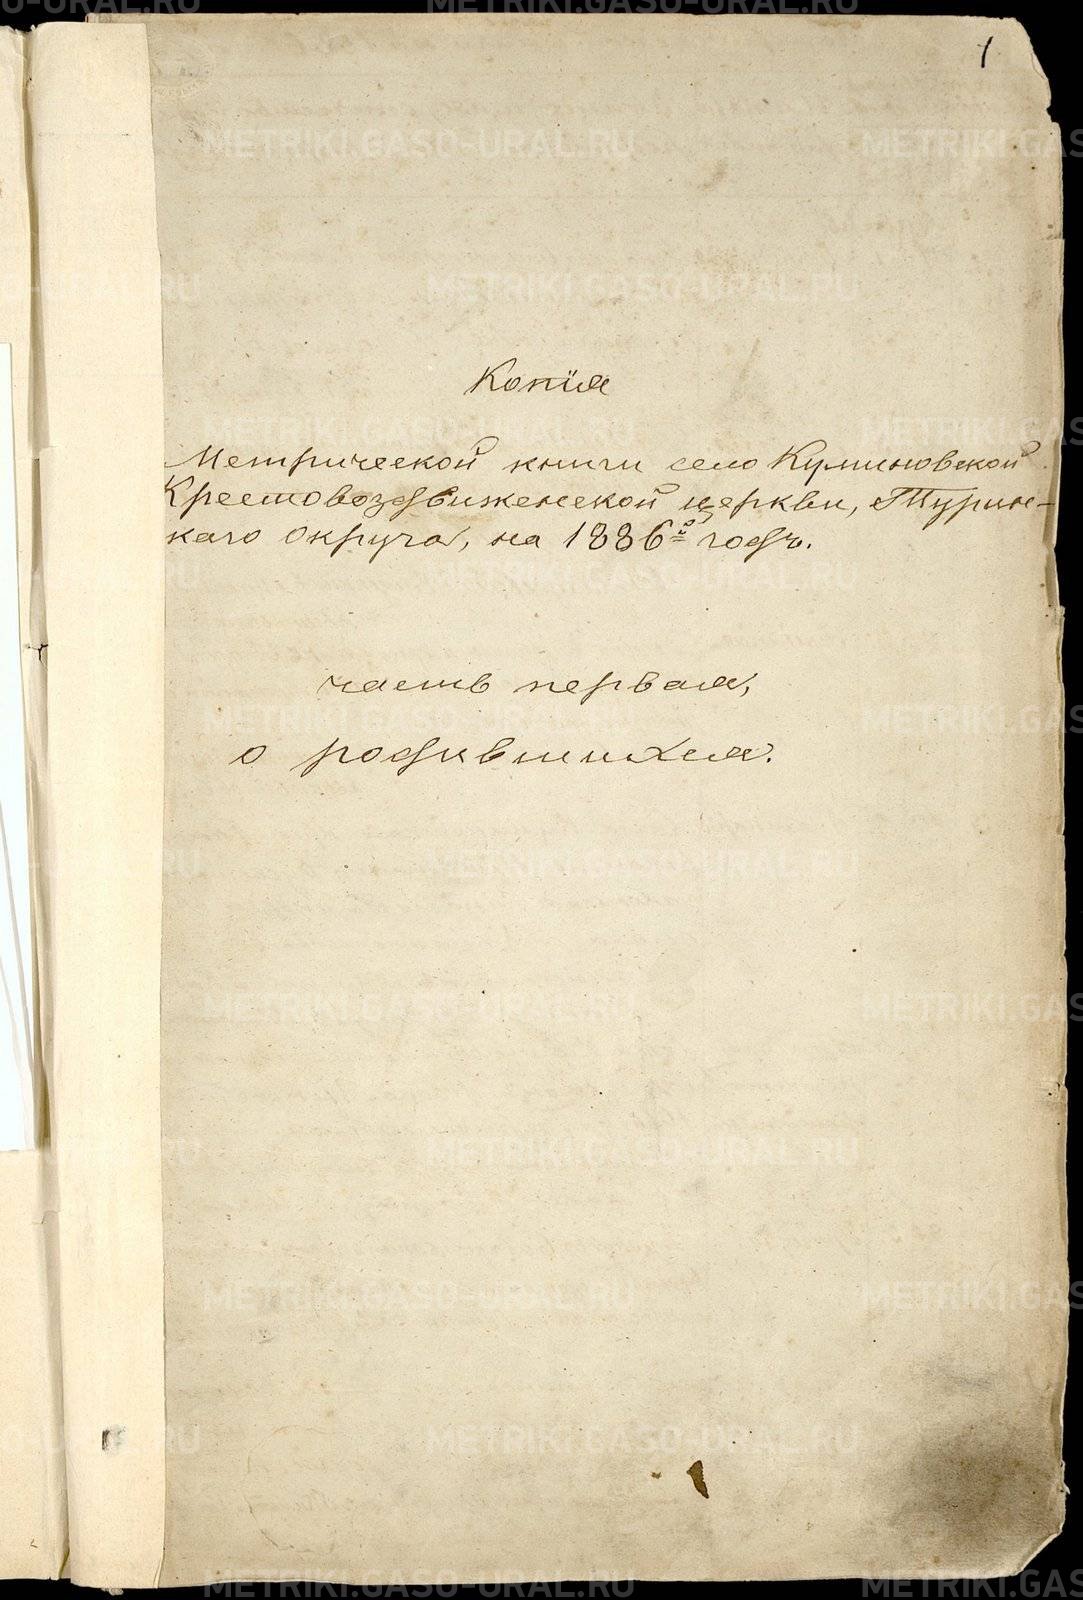 1
Копія
Метрической книги село Куминовской
Крестовоздвиженской церкви, Турин-
каго округа, на 1886й годъ.
часть первая,
о родившихся.
METRIKI.GASO-URAL.RU